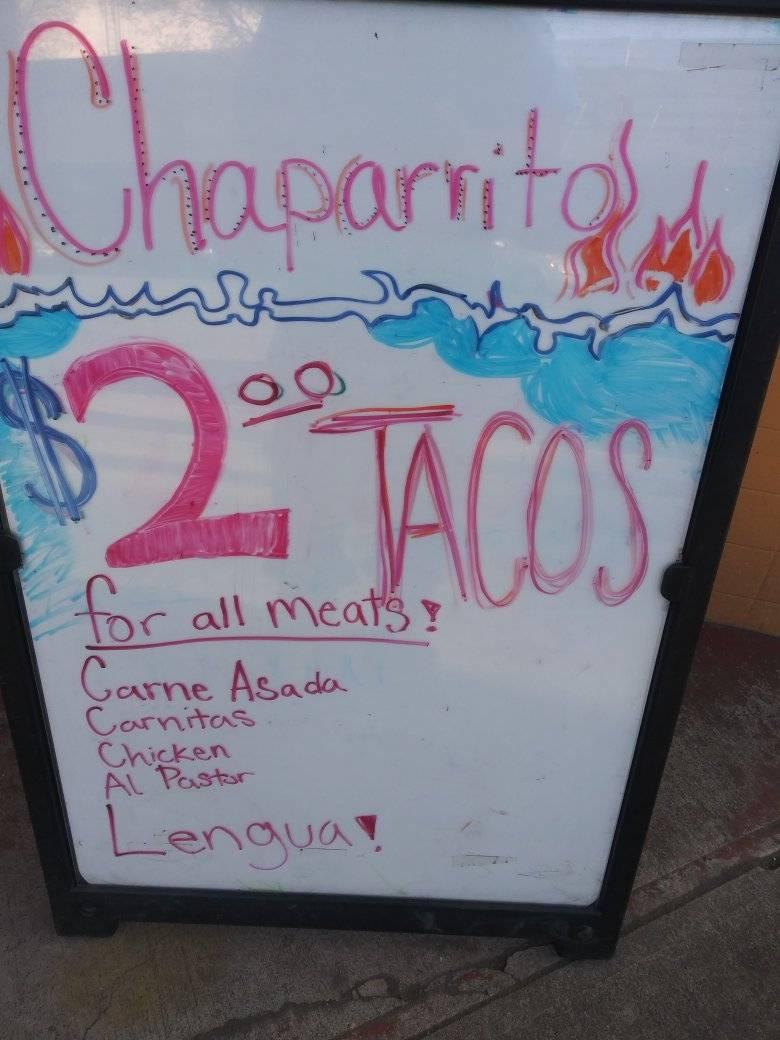 Chaparrito
$2.00 TACOS
for all meats!
Carne Asada
Carnitas
Chicken
Al Pastor
Lengua!